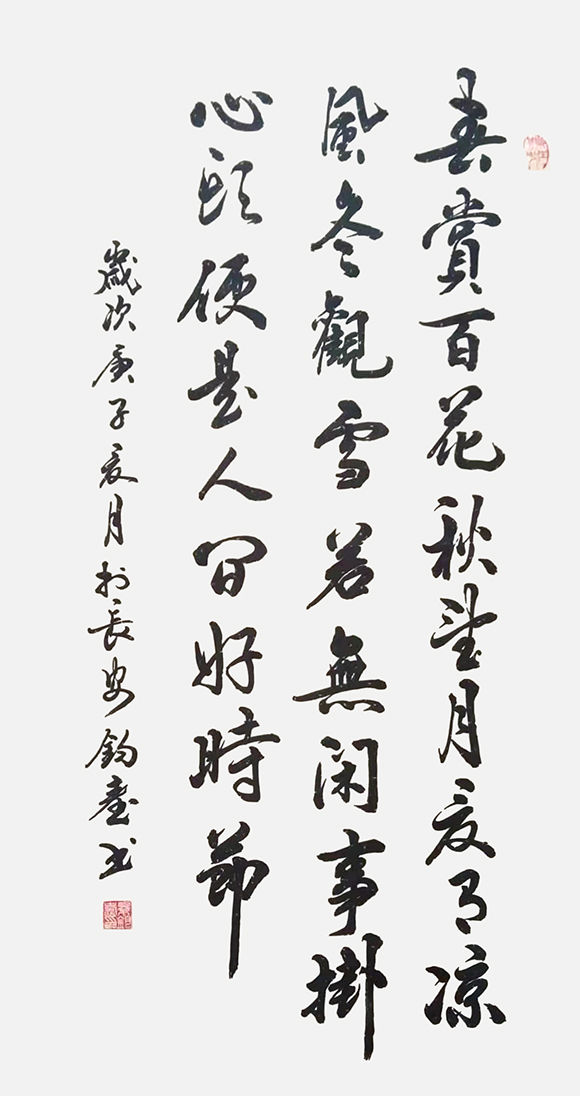 春賞百花秋望月夏有凉
風冬觀雪若無闲事掛
心头便是人间好時節
歲次庚子夏月於長安鈞臺书